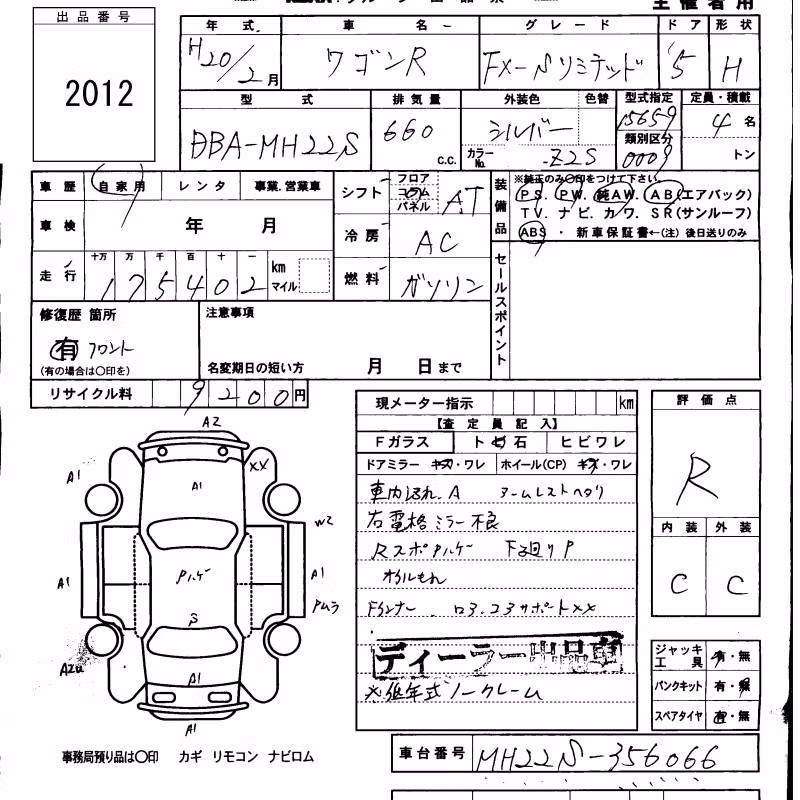 主催者用
出品番号
2012
年式 車名 グレード ドア 形状
H20/2月 ワゴンR FX-Sリミテッド 5 H
型式 排気量 外装色 色替 型式指定 定員・積載
DBA-MH22S 660 c.c. シルバー カラーNo. Z2S 15659 類別区分 0009 4名 トン
車歴 自家用 レンタ 事業.営業車
シフト フロア コラム パネル AT
装備品 ※純正のみ○印をつけて下さい。
PS. PW. 純AW. AB(エアバック)
TV. ナビ. カワ. SR(サンルーフ)
ABS ・ 新車保証書←(注) 後日送りのみ
車検 年 月
冷房 AC
走行 十万 万 千 百 十 一
175402 km マイル
燃料 ガソリン
セールスポイント
修復歴 箇所 注意事項
有 フロント
(有の場合は○印を) 名変期日の短い方 月 日まで
リサイクル料 9200円
現メーター指示 km
【査定員記入】
Fガラス トビ石 ヒビワレ
ドアミラー キズ・ワレ ホイール(CP) キズ・ワレ
車内汚れ.A アームレストヘタリ
右電格ミラー不良
Rスポアルケー F廻りP
オイルもれ
Fインナー . ロ3.23サポートXX
ディーラー出品車
※低年式ノークレーム
評価点
R
内装 外装
C C
ジャッキ 工具 有・無
パンクキット 有・無
スペアタイヤ 有・無
A2
XX
A1
A1
W2
Pハゲ
A1
A1
Pムラ
S
A2
A1
A1
事務局預り品は○印 カギ リモコン ナビロム
車台番号 MH22S-356066